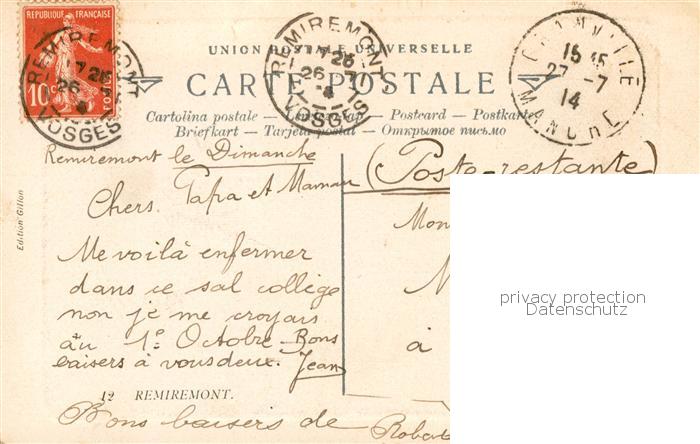 REPUBLIQUE FRANÇAISE
10c POSTES
REMIREMONT
7 25
26 -7
VOSGES
REMIREMONT
7 25
26 -7
VOSGES
GRANVILLE
15 45
27 -7
14
MANCHE
UNION POSTALE UNIVERSELLE
CARTE POSTALE
Cartolina postale — — Postcard — Postkarte
Briefkart — Tarjeta postal — Открытое письмо
Remiremont le Dimanche
(Poste-restante
Chers Papa et Maman
Mon
Me voilà enfermer
dans ce sal collège
non je me croyais
au 1º Octobre. Bons
baisers à vous deux. Jean
à
12 REMIREMONT.
Bons baisers de Robert
Edition Gillon
privacy protection
Datenschutz